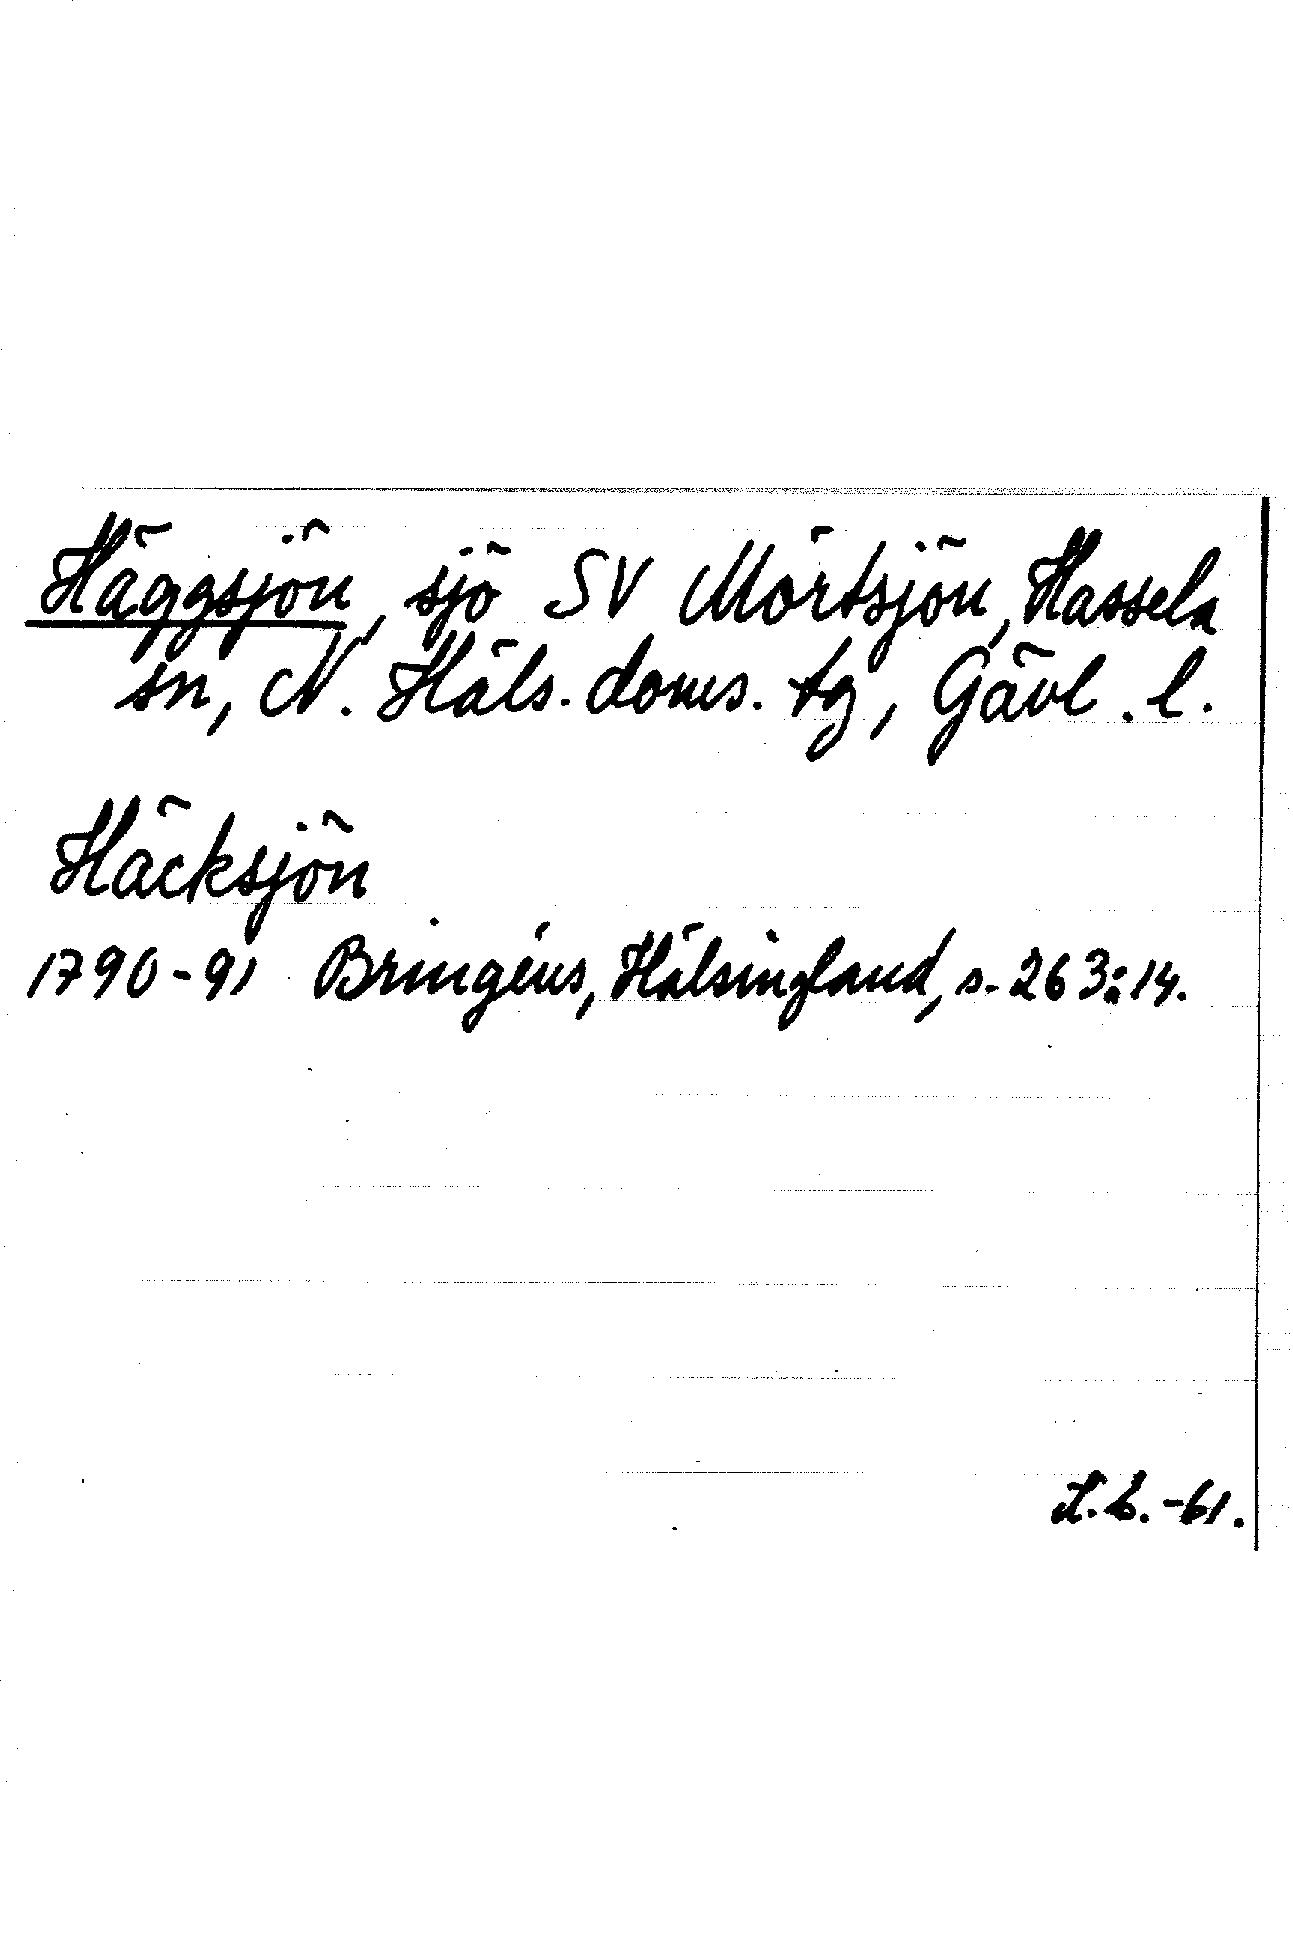 Häggsjön, sjö SV Mörtsjön, Hassela
sn, N. Häls. doms. tg, Gävl. l.
Häcksjön
1790-91 Bringéus, Hälsingland, s. 263:14.
-61.